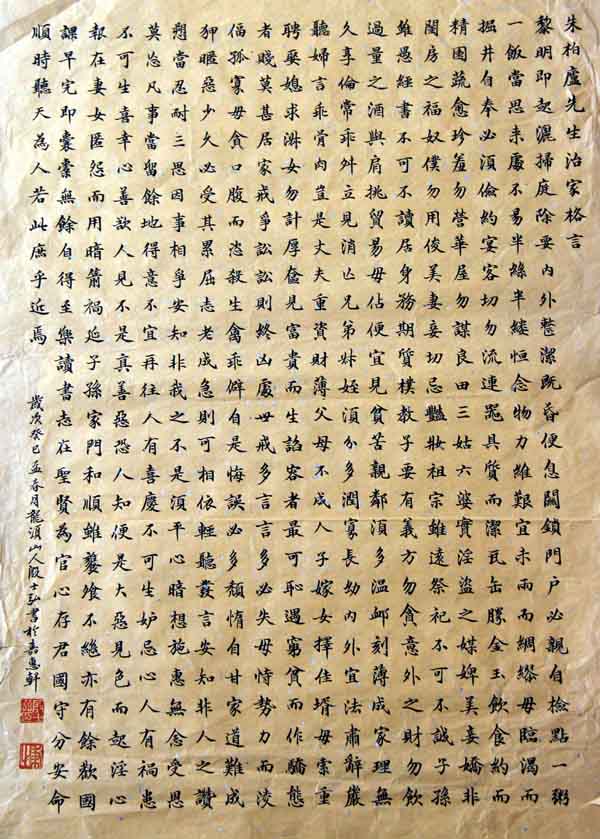 朱柏廬先生治家格言
黎明即起灑掃庭除要內外整潔既昏便息關鎖門戶必親自檢點一粥
一飯當思來處不易半絲半縷恒念物力維艱宜未雨而綢繆毋臨渴而
掘井自奉必湏儉約宴客切勿流連器具質而潔瓦缶勝金玉飲食約而
精園蔬愈珍羞勿營華屋勿謀良田三姑六婆實淫盜之媒婢美妾嬌非
閨房之福奴僕勿用俊美妻妾切忌豔妝祖宗雖遠祭祀不可不誠子孫
雖愚經書不可不讀居身務期質樸教子要有義方勿貪意外之財勿飲
過量之酒與肩挑貿易毋佔便宜見貧苦親鄰湏多溫卹刻薄成家理無
久享倫常乖舛立見消亡兄弟姊姪湏分多潤寡長幼內外宜法肅辭嚴
聽婦言乖骨肉豈是丈夫重資財薄父母不成人子嫁女擇佳壻毋索重
聘娶媳求淑女勿計厚奩見富貴而生諂容者最可恥遇窮貧而作驕態
者賤莫甚居家戒爭訟訟則終凶處世戒多言言多必失毋恃勢力而凌
偪孤寡毋貪口腹而恣殺生禽乖僻自是悔誤必多頹惰自甘家道難成
狎暱惡少久必受其累屈志老成急則可相依輕聽發言安知非人之讚
愬當忍耐三思因事相爭安知非我之不是湏平心暗想施惠無念受恩
莫忘凡事當留餘地得意不宜再往人有喜慶不可生妒忌心人有禍患
不可生喜幸心善欲人見不是真善惡恐人知便是大惡見色而起淫心
報在妻女匿怨而用暗箭禍延子孫家門和順雖饔飧不繼亦有餘歡國
課早完即囊橐無餘自得至樂讀書志在聖賢為官心存君國守分安命
順時聽天為人若此庶乎近焉
歲次癸巳孟春月龍湏山人殷士弘書於嘉惠軒